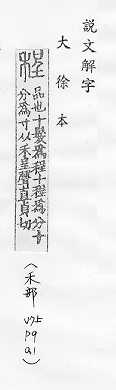 說文解字
大徐本
程
品也十髮為程十程為分十
分為寸从禾呈聲直貞切
(禾部